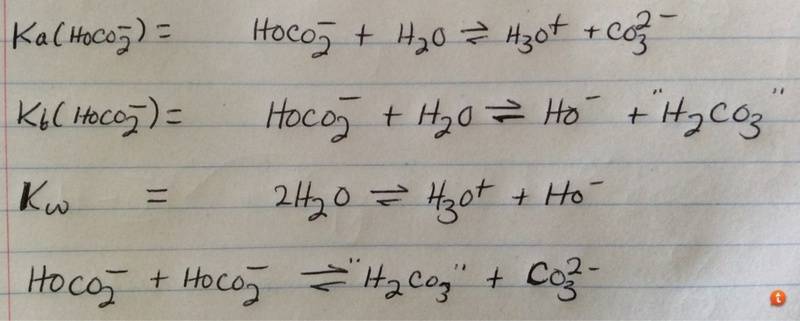 Ka(HOCO₂⁻) = HOCO₂⁻ + H₂O ⇌ H₃O⁺ + CO₃²⁻
Kb(HOCO₂⁻) = HOCO₂⁻ + H₂O ⇌ HO⁻ + "H₂CO₃"
Kw = 2H₂O ⇌ H₃O⁺ + HO⁻
HOCO₂⁻ + HOCO₂⁻ ⇌ "H₂CO₃" + CO₃²⁻
t